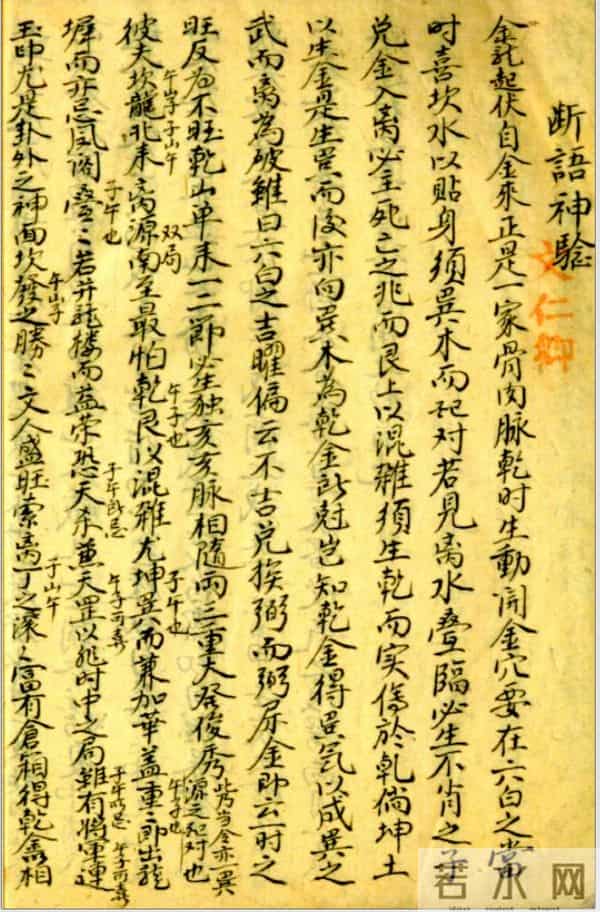 断語神驗
文仁卿
金龍起伏自金來正是一家骨肉脉乾时生動開金穴要在六白之當
时喜坎水以貼身須巽水而配对若見离水叠臨必生不肖之子
兑金入离必主死亡之兆而艮上以混雜須生乾而实傷於乾倘坤土
以生金是生巽而後亦向巽木為乾金所尅岂知乾金得巽氣以成巽之
武而离為破雖曰六白之吉曜偏云不吉兑挨弼而弼屏金即云一时之
旺反為不旺乾山单来一二節必生独亥亥脉相隨两三重大發俊秀
此乃當令亦一巽源之配对也
午山子子山午
双局
午子也
子午也
午子也
彼夫坎龍北来离源南至最怕乾艮以混雜尤坤巽而兼加華盖重二節出龍
墀而亦忌凤阁叠二若并龍楼而益荣恐天杀蕙天罡以非时中之局雖有將军連
子午也
子午所忌
午子可喜
子午所忌
午子可喜
玉印尤是卦外之神面坎發之勝二文人盛旺索离丁之深二富有倉箱得乾金相
午山子
子山午
若水网